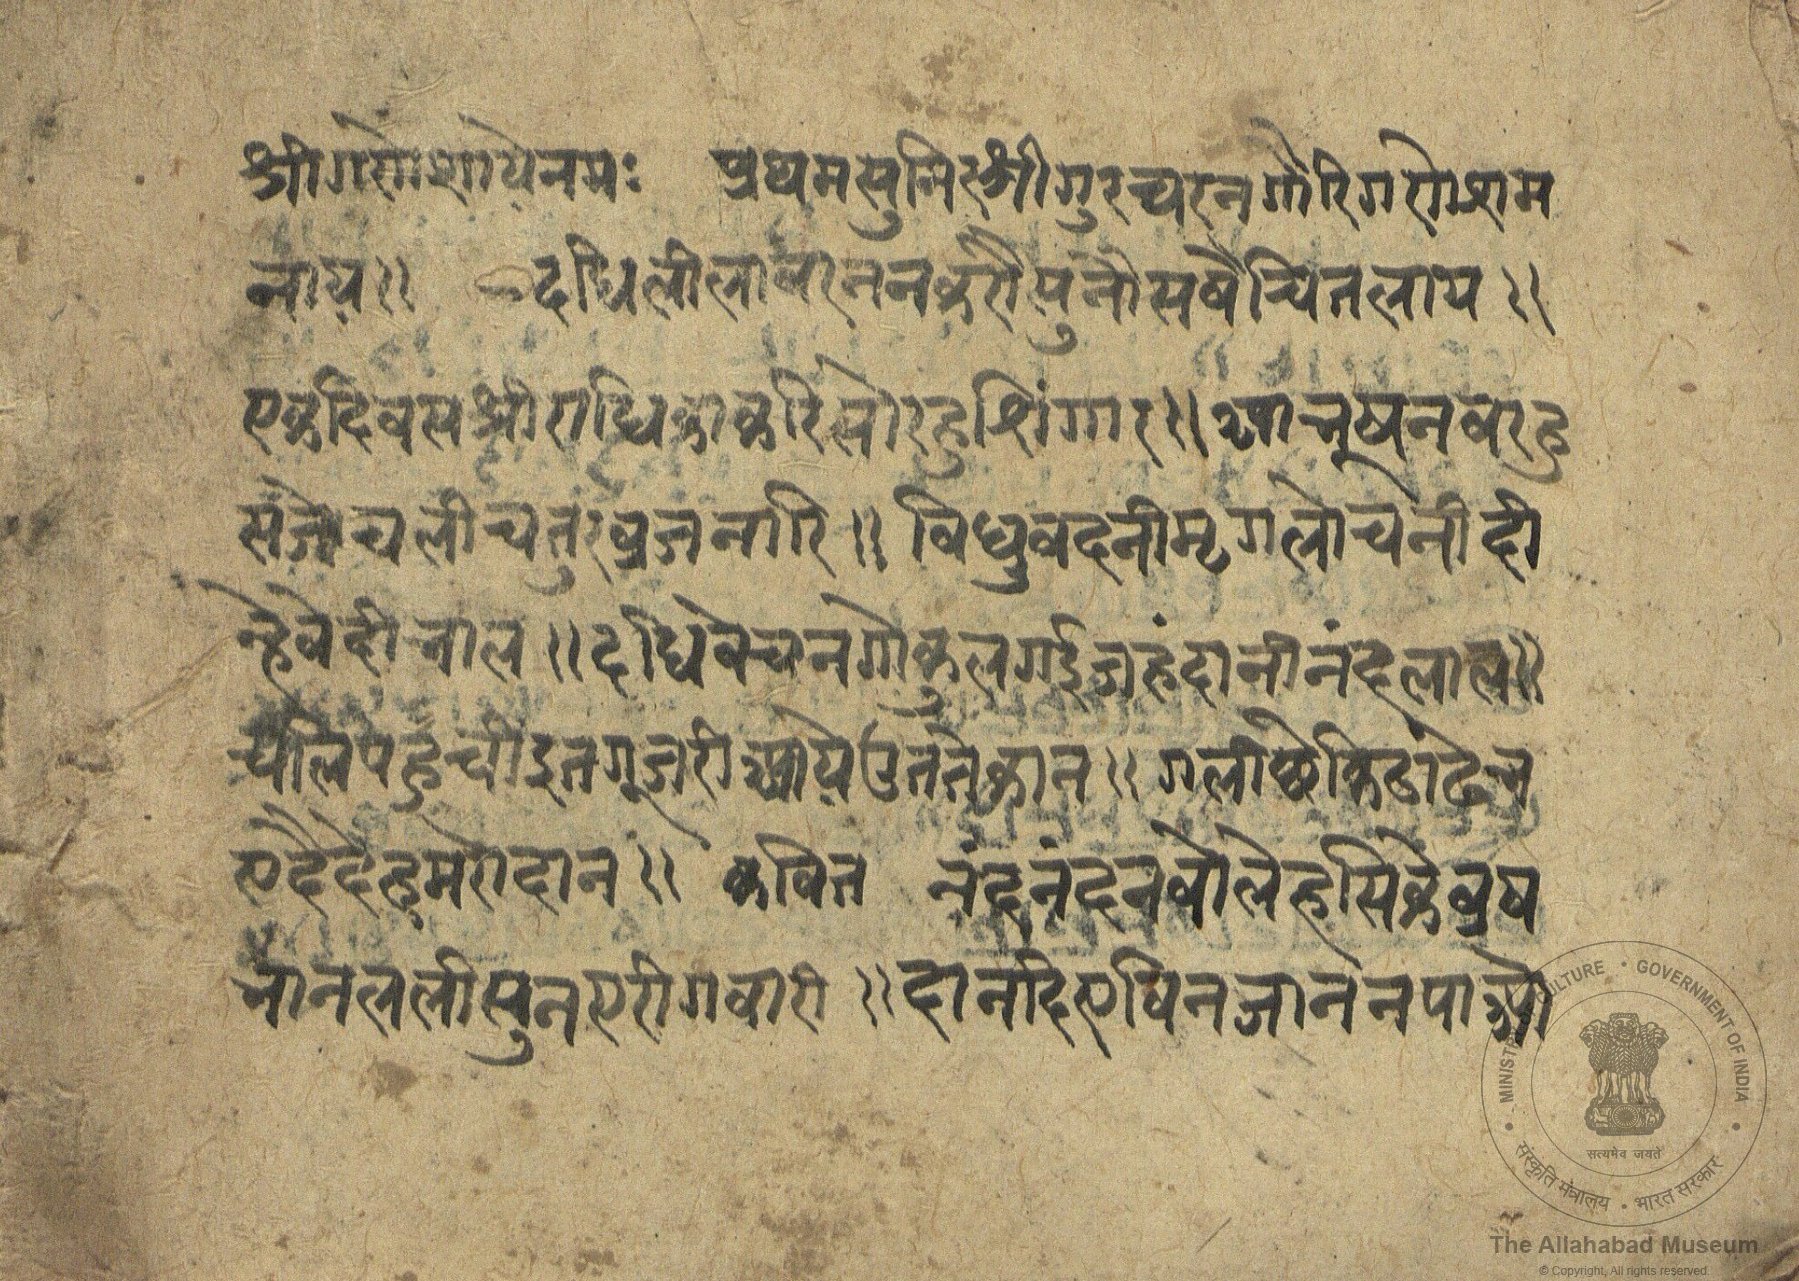 श्रीगणेशायेनमः प्रथमसुमिरश्रीगुरचरनगौरिगणेशम
नाय॥ दधिलीलावरननकरौसुनोसबैचितलाय॥
एकदिवसश्रीराधिकाकरिसोरहशिंगार॥आभूषनबहु
संजोचलीचतुरब्रजनारि॥विधुवदनीमृगलोचनीदी
न्हेवेदीभाल॥दधिबेचनगोकुलगईजहंदानीनंदलाल॥
चलिपहुचीइतगूजरीआयेउततेकान॥गलीछेकिठाढेभ
एदैदेहमरोदान॥ कवित नंदनंदनबोलेहसिकेब्रष
भानललीसुनएरीगवारी॥दानदिएबिनजानेनपाओ
MINISTRY OF CULTURE • GOVERNMENT OF INDIA
सत्यमेव जयते
संस्कृति मंत्रालय • भारत सरकार
The Allahabad Museum
© Copyright, All rights reserved.